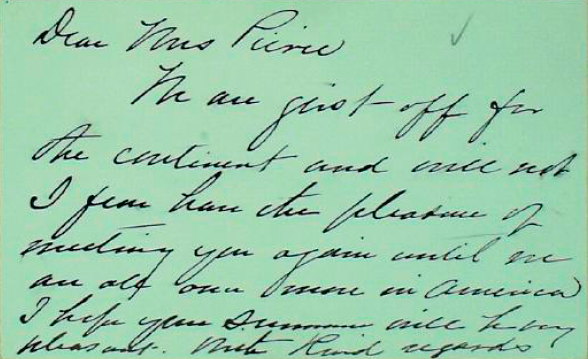 Dear Mrs Pierce
We are just off for
the continent and will not
I fear have the pleasure of
meeting you again until we
are all once more in America
I hope your summer will be very
pleasant. With kind regards